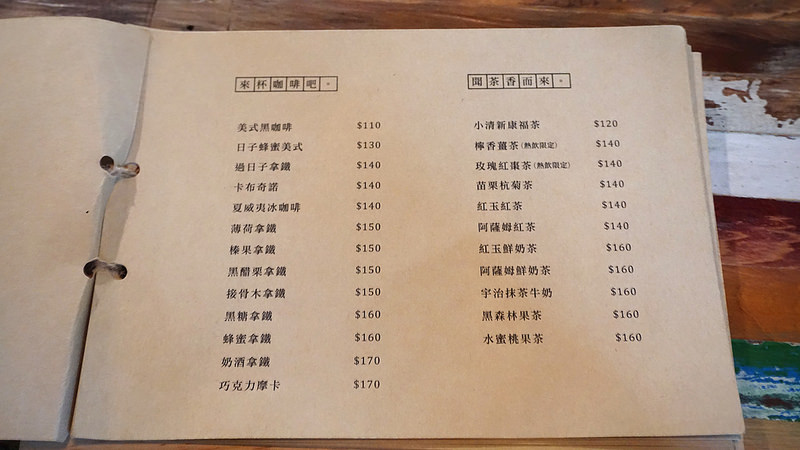 來杯咖啡吧。
美式黑咖啡 $110
日子蜂蜜美式 $130
過日子拿鐵 $140
卡布奇諾 $140
夏威夷冰咖啡 $140
薄荷拿鐵 $150
榛果拿鐵 $150
黑醋栗拿鐵 $150
接骨木拿鐵 $150
黑糖拿鐵 $160
蜂蜜拿鐵 $160
奶酒拿鐵 $170
巧克力摩卡 $170
聞茶香而來。
小清新康福茶 $120
檸香薑茶(熱飲限定) $140
玫瑰紅棗茶(熱飲限定) $140
苗栗杭菊茶 $140
紅玉紅茶 $140
阿薩姆紅茶 $140
紅玉鮮奶茶 $160
阿薩姆鮮奶茶 $160
宇治抹茶牛奶 $160
黑森林果茶 $160
水蜜桃果茶 $160